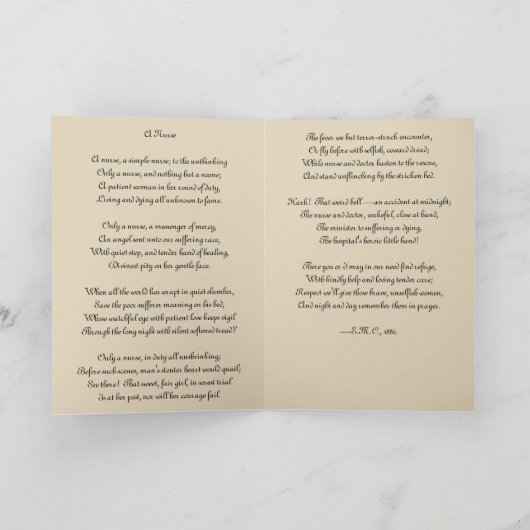 A Nurse
A nurse, a simple nurse; to the unthinking
Only a nurse, and nothing but a name;
A patient woman in her round of duty,
Living and dying all unknown to fame.
Only a nurse, a messenger of mercy,
An angel sent unto our suffering race,
With quiet step, and tender hand of healing,
Divinest pity on her gentle face.
When all the world lies wrapt in quiet slumber,
Save the poor sufferer moaning on his bed,
Whose watchful eye with patient love keeps vigil
Through the long night with silent softened tread?
Only a nurse, in duty all unshrinking;
Before such scenes, man's stouter heart would quail;
See there! That sweet, fair girl, in sorest trial
Is at her post, nor will her courage fail.
The fever we but terror-struck encounter,
Or fly before with selfish, coward dread;
While nurse and doctor hasten to the rescue,
And stand unflinching by the stricken bed.
Hark! That weird bell—an accident at midnight;
The nurse and doctor, wakeful, close at hand,
The minister to suffering or dying,
The hospital's heroic little band!
There you or I may in our need find refuge,
With kindly help and loving tender care;
Respect we'll give those brave, unselfish women,
And night and day remember them in prayer.
—E.M.C., 1886.